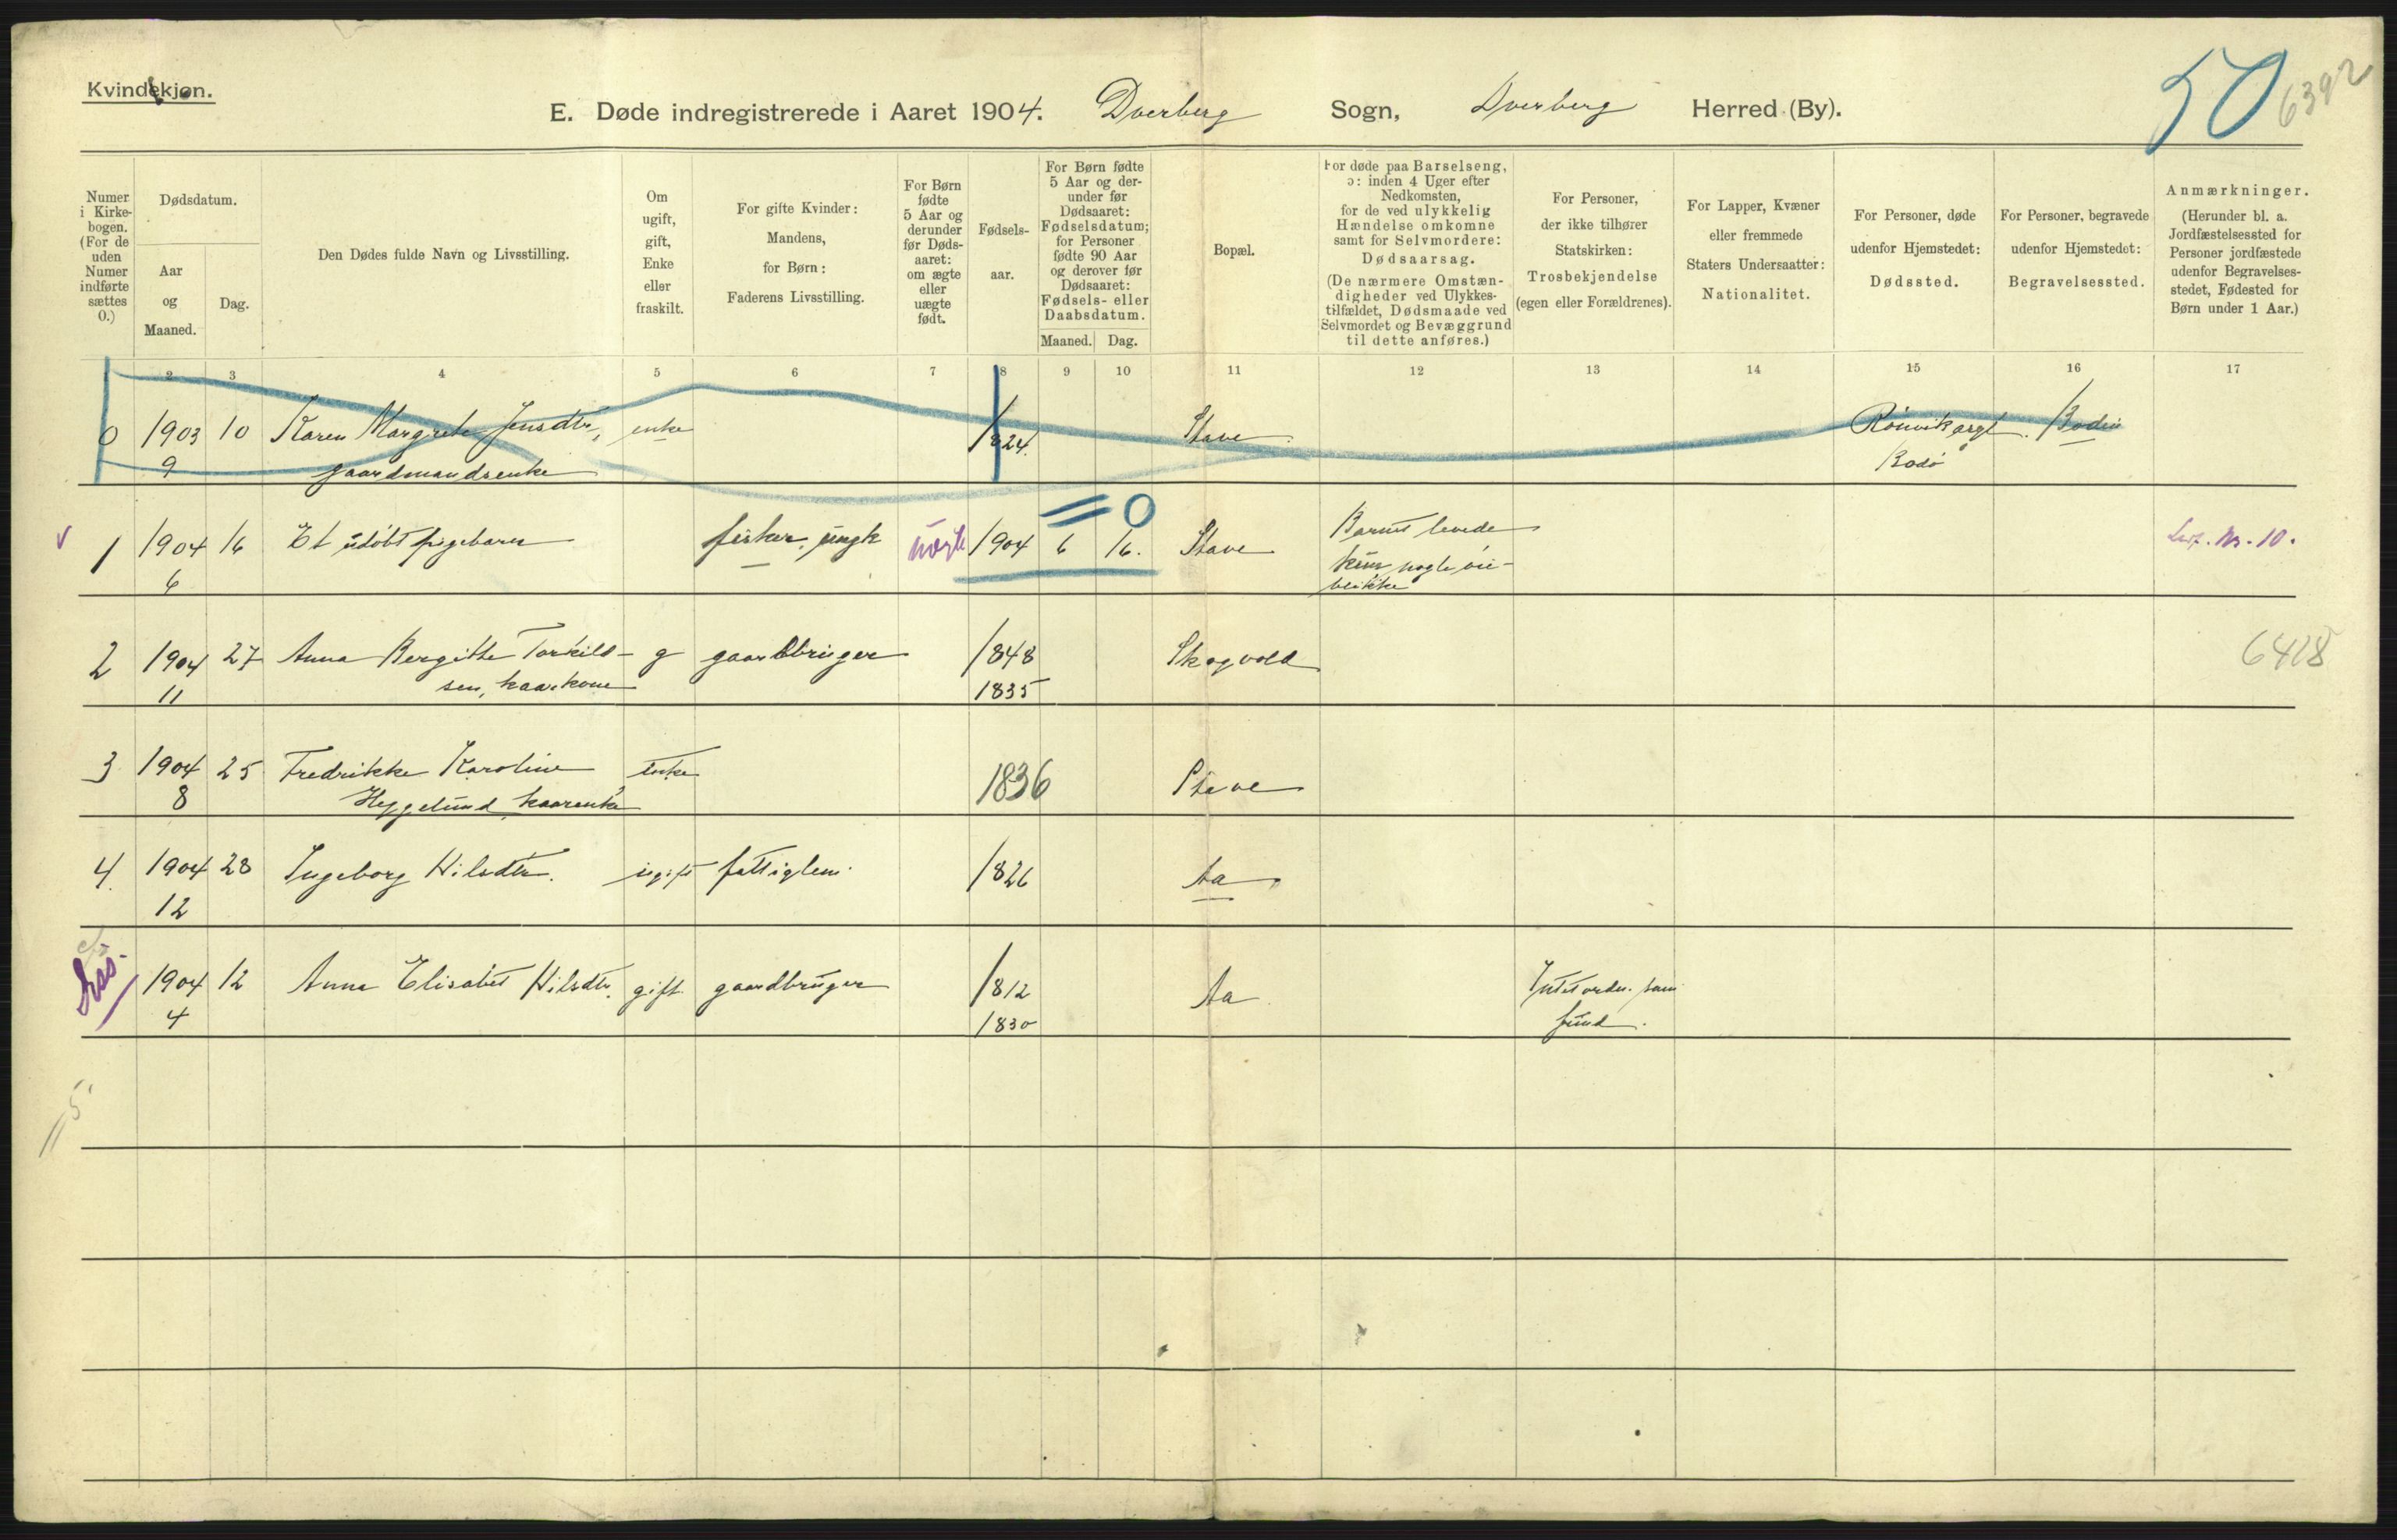 Kvindekjøn.
E. Døde indregistrerede i Aaret 1904. Dverberg Sogn, Dverberg Herred (By).
50
6392
Numer i Kirke-bogen. (For de uden Numer indførte sættes 0.)
Dødsdatum.
Aar og Maaned.
Dag.
Den Dødes fulde Navn og Livsstilling.
Om ugift, gift, Enke eller fraskilt.
For gifte Kvinder: Mandens, for Børn: Faderens Livsstilling.
For Børn fødte 5 Aar og derunder før Døds-aaret: om ægte eller uægte født.
Fødsels-aar.
For Børn fødte 5 Aar og der-under før Dødsaaret: Fødselsdatum; for Personer fødte 90 Aar og derover før Dødsaaret: Fødsels- eller Daabsdatum.
Maaned. Dag.
Bopæl.
For døde paa Barselseng, ɔ: inden 4 Uger efter Nedkomsten, for de ved ulykkelig Hændelse omkomne samt for Selvmordere: Dødsaarsag. (De nærmere Omstæn-digheder ved Ulykkes-tilfældet, Dødsmaade ved Selvmordet og Bevæggrund til dette anføres.)
For Personer, der ikke tilhører Statskirken: Trosbekjendelse (egen eller Forældrenes).
For Lapper, Kvæner eller fremmede Staters Undersaatter: Nationalitet.
For Personer, døde udenfor Hjemstedet: Dødssted.
For Personer, begravede udenfor Hjemstedet: Begravelsessted.
Anmærkninger. (Herunder bl. a. Jordfæstelsessted for Personer jordfæstede udenfor Begravelses-stedet, Fødested for Børn under 1 Aar.)
2 3 4 5 6 7 8 9 10 11 12 13 14 15 16 17
0 1903 10 Karen Margrete Jensdtr, enke 1824. Stave Rönvik asyl. Bodin
9 gaardmandsenke Bodö
= 0
1 1904 16 Et udöbt pigebarn fisker, ungk uægte 1904 6 16. Stave Barnet levede
6 kun nogle öie-
blikke
Lev. Nr. 10.
2 1904 27 Anna Bergitte Torkild- g gaardbruger 1848 Skogvold
11 sen, kaarkone 1835
6418
3 1904 25 Fredrikke Karoline enke 1836 Stave
8 Heggelund, kaarenke
4. 1904 28 Ingeborg Nilsdtr. ugift fattiglem 1826 Aa
12
Diss. 1904 12 Anna Elisabet Nilsdtr. gift gaardbruger 1812 Aa
4 1830 fund.
5